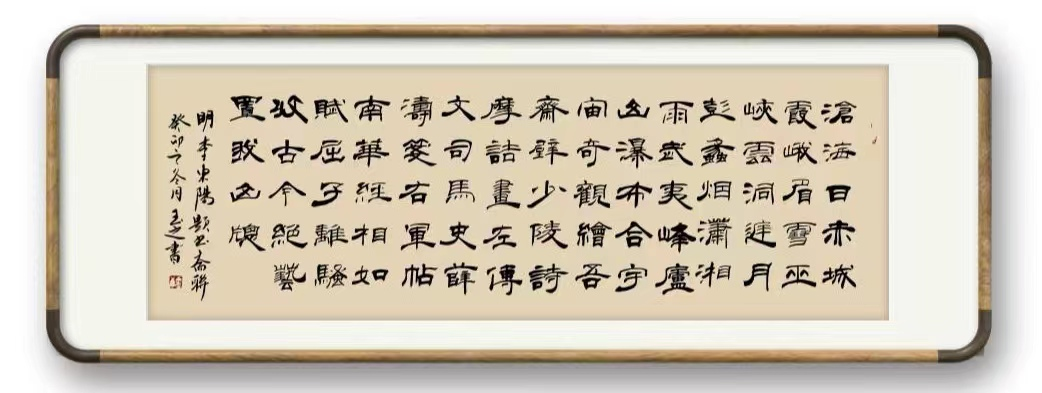 滄海日赤城
霞峨眉雪巫
峽雲洞庭月
彭蠡烟瀟湘
雨武夷峰廬
山瀑布合宇
宙奇觀繪吾
齋壁少陵詩
摩詰畫左傳
文司馬史薛
濤箋右軍帖
南華經相如
賦屈子離騷
收古今絕藝
置我山牕
明李東陽題书斎聯
癸卯之冬月書